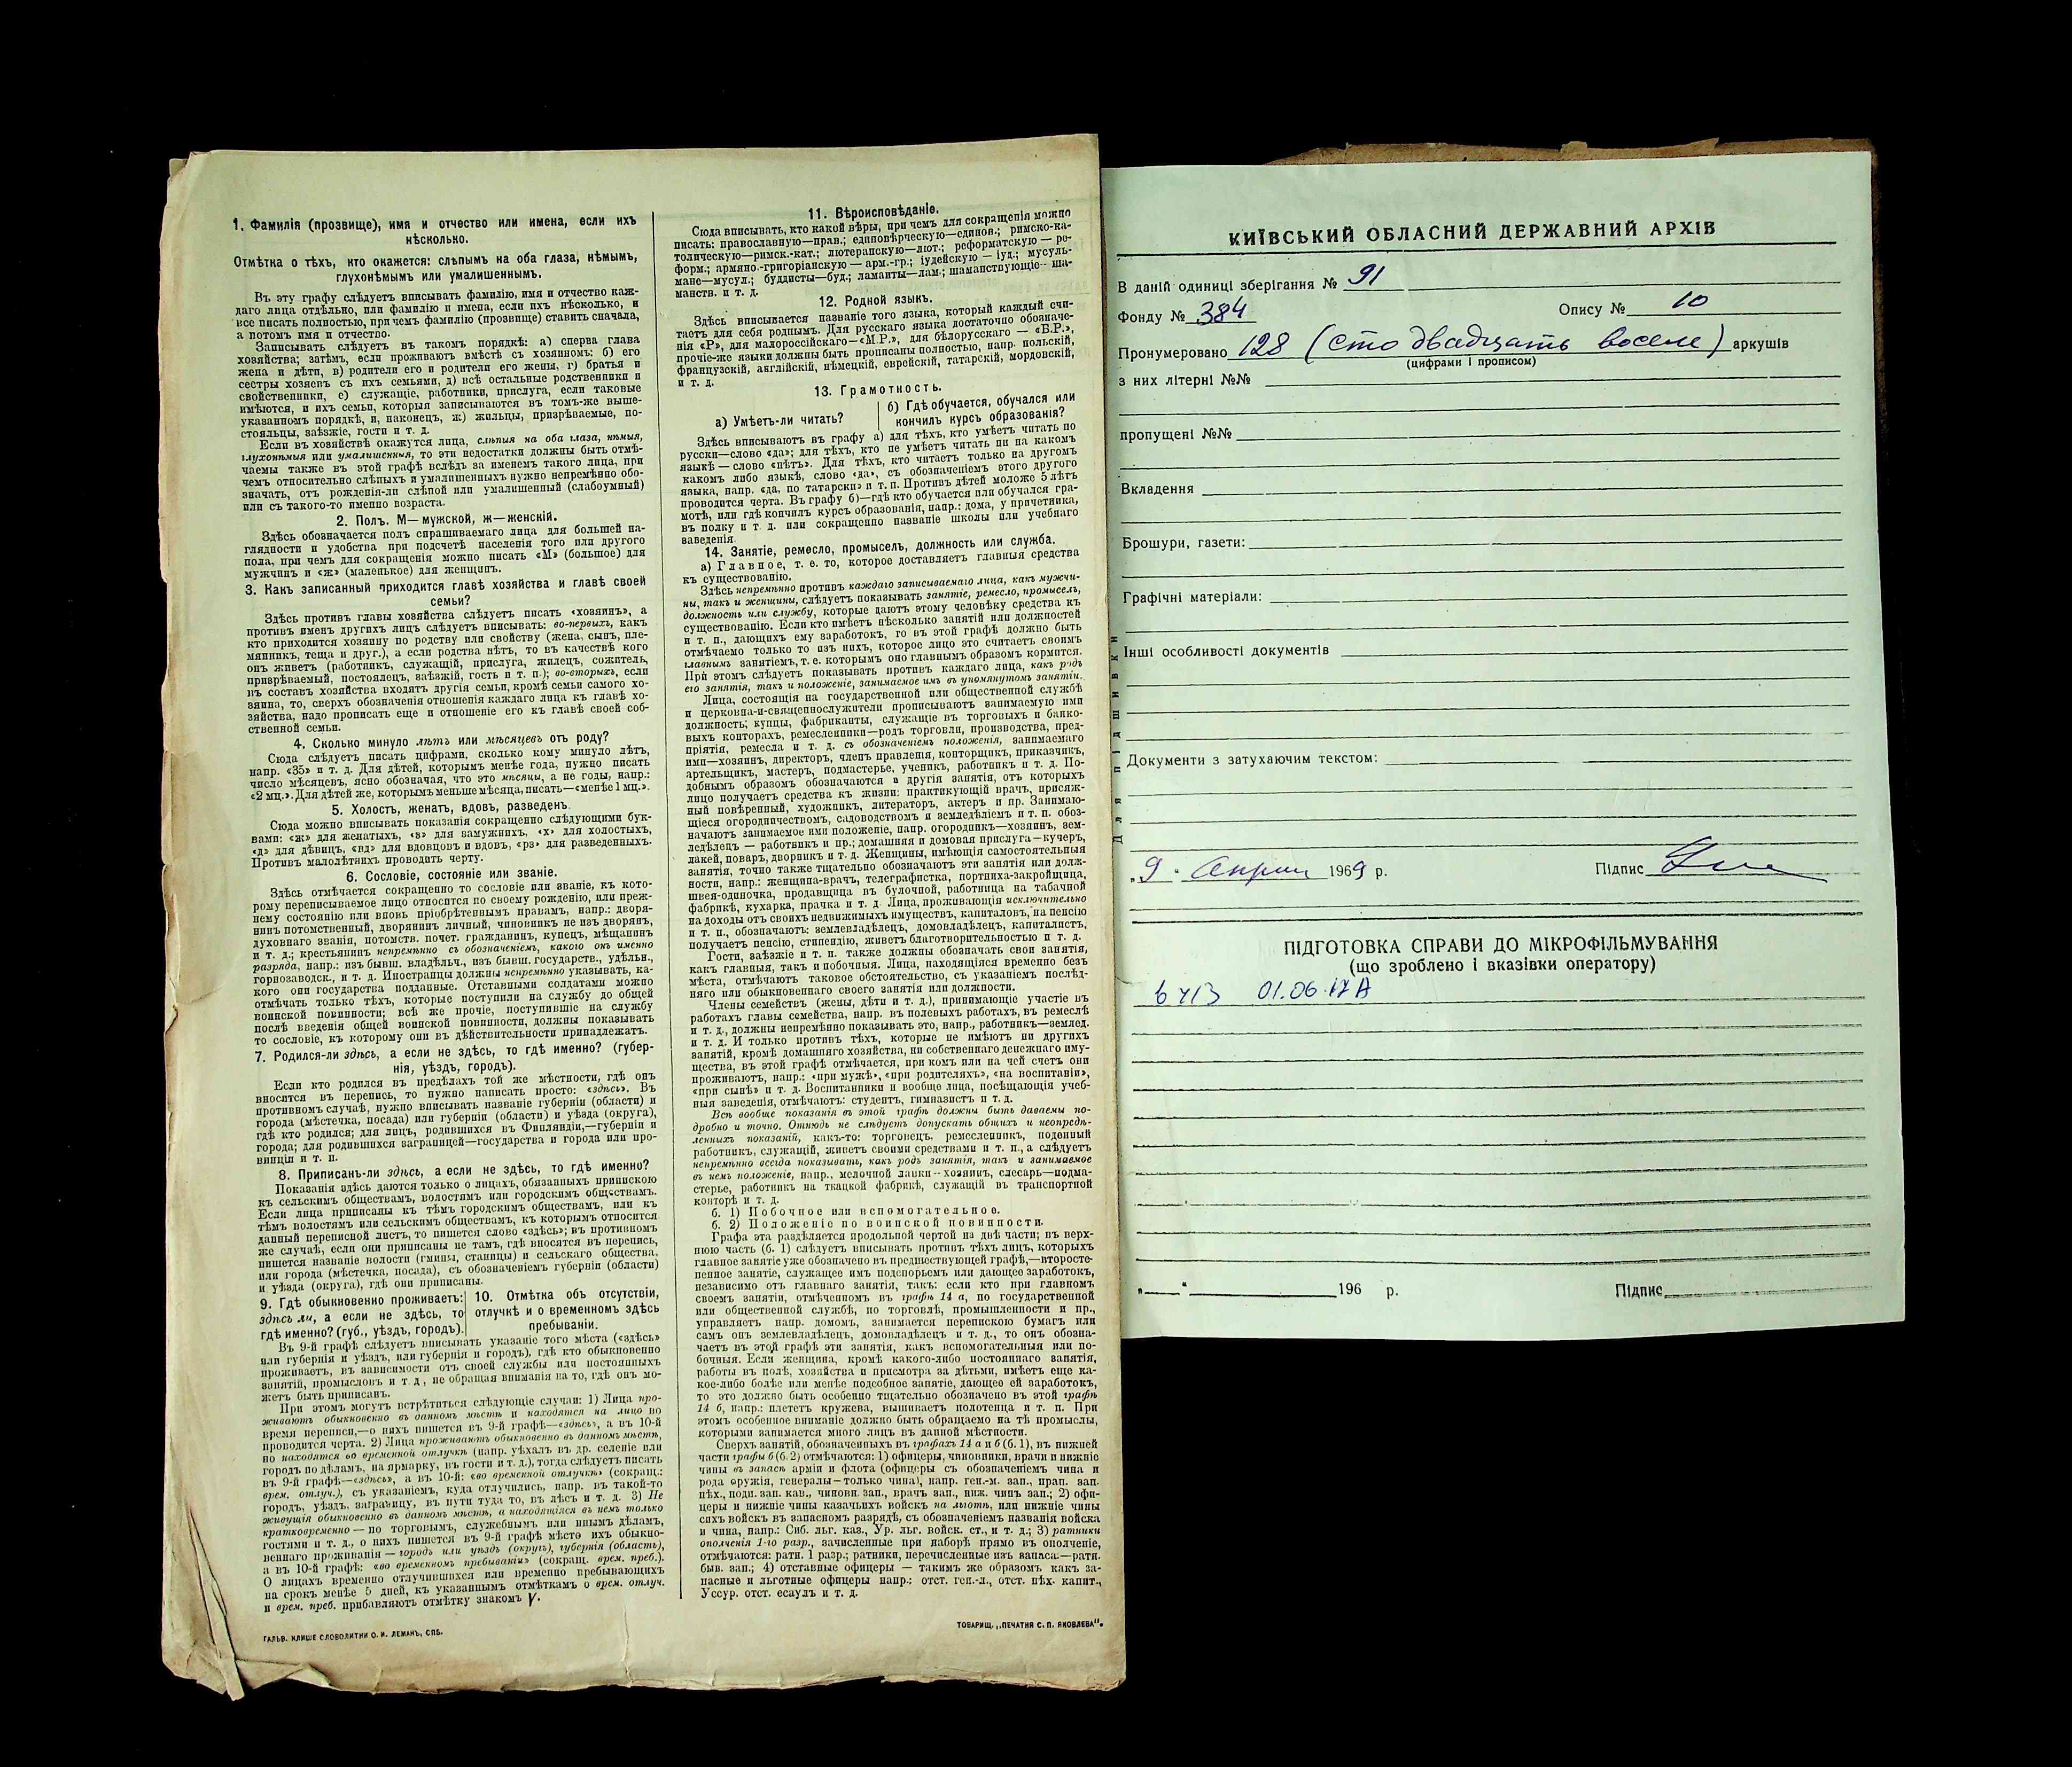 1. Фамилія (прозвище), имя и отчество или имена, если ихъ
нѣсколько.
Отмѣтка о тѣхъ, кто окажется: слѣпымъ на оба глаза, нѣмымъ,
глухонѣмымъ или умалишеннымъ.
Въ эту графу слѣдуетъ вписывать фамилію, имя и отчество каж-
даго лица отдѣльно, или фамилію и имена, если ихъ нѣсколько, и
все писать полностью, при чемъ фамилію (прозвище) ставить сначала,
а потомъ имя и отчество.
Записывать слѣдуетъ въ такомъ порядкѣ: а) сперва глава
хозяйства; затѣмъ, если проживаютъ вмѣстѣ съ хозяиномъ: б) его
жена и дѣти, в) родители его и родители его жены, г) братья и
сестры хозяевъ съ ихъ семьями, д) всѣ остальные родственники и
свойственники, е) служащіе, работники, прислуга, если таковые
имѣются, и ихъ семьи, которыя записываются въ томъ-же выше-
указанномъ порядкѣ, и, наконецъ, ж) жильцы, призрѣваемые, по-
стояльцы, заѣзжіе, гости и т. д.
Если въ хозяйствѣ окажутся лица, слѣпыя на оба глаза, нѣмыя,
глухонѣмыя или умалишенныя, то эти недостатки должны быть отмѣ-
чаемы также въ этой графѣ вслѣдъ за именемъ такого лица, при
чемъ относительно слѣпыхъ и умалишенныхъ нужно непремѣнно обо-
значать, отъ рожденія-ли слѣпой или умалишенный (слабоумный)
или съ такого-то именно возраста.
2. Полъ. М—мужской, ж—женскій.
Здѣсь обозначается полъ спрашиваемаго лица для большей на-
глядности и удобства при подсчетѣ населенія того или другого
пола, при чемъ для сокращенія можно писать «М» (большое) для
мужчинъ и «ж» (маленькое) для женщинъ.
3. Какъ записанный приходится главѣ хозяйства и главѣ своей
семьи?
Здѣсь противъ главы хозяйства слѣдуетъ писать «хозяинъ», а
противъ именъ другихъ лицъ слѣдуетъ вписывать: во-первыхъ, какъ
кто приходится хозяину по родству или свойству (жена, сынъ, пле-
мянникъ, теща и друг.), а если родства нѣтъ, то въ качествѣ кого
онъ живетъ (работникъ, служащій, прислуга, жилецъ, сожитель,
призрѣваемый, постоялецъ, заѣзжій, гость и т. п.); во-вторыхъ, если
въ составъ хозяйства входятъ другія семьи, кромѣ семьи самого хо-
зяина, то, сверхъ обозначенія отношенія каждаго лица къ главѣ хо-
зяйства, надо прописать еще и отношеніе его къ главѣ своей соб-
ственной семьи.
4. Сколько минуло лѣтъ или мѣсяцевъ отъ роду?
Сюда слѣдуетъ писать цифрами, сколько кому минуло лѣтъ,
напр. «35» и т. д. Для дѣтей, которымъ менѣе года, нужно писать
число мѣсяцевъ, ясно обозначая, что это мѣсяцы, а не годы, напр.:
«2 мц.». Для дѣтей же, которымъ меньше мѣсяца, писать—«менѣе 1 мц.».
5. Холостъ, женатъ, вдовъ, разведенъ.
Сюда можно вписывать показанія сокращенно слѣдующими бук-
вами: «ж» для женатыхъ, «з» для замужнихъ, «х» для холостыхъ,
«д» для дѣвицъ, «вд» для вдовцовъ и вдовъ, «рз» для разведенныхъ.
Противъ малолѣтнихъ проводить черту.
6. Сословіе, состояніе или званіе.
Здѣсь отмѣчается сокращенно то сословіе или званіе, къ кото-
рому переписываемое лицо относится по своему рожденію, или преж-
нему состоянію или вновь пріобрѣтеннымъ правамъ, напр.: дворя-
нинъ потомственный, дворянинъ личный, чиновникъ не изъ дворянъ,
духовнаго званія, потомств. почет. гражданинъ, купецъ, мѣщанинъ
и т. д.; крестьянинъ непремѣнно съ обозначеніемъ, какого онъ именно
разряда, напр.: изъ бывш. владѣльч., изъ бывш. государств., удѣльн.,
горнозаводск., и т. д. Иностранцы должны непремѣнно указывать, ка-
кого они государства подданные. Отставными солдатами можно
отмѣчать только тѣхъ, которые поступили на службу до общей
воинской повинности; всѣ же прочіе, поступившіе на службу
послѣ введенія общей воинской повинности, должны показывать
то сословіе, къ которому они въ дѣйствительности принадлежатъ.
7. Родился-ли здѣсь, а если не здѣсь, то гдѣ именно? (губер-
нія, уѣздъ, городъ).
Если кто родился въ предѣлахъ той же мѣстности, гдѣ онъ
вносится въ перепись, то нужно написать просто: «здѣсь». Въ
противномъ случаѣ, нужно вписывать названіе губерніи (области) и
города (мѣстечка, посада) или губерніи (области) и уѣзда (округа),
гдѣ кто родился; для лицъ, родившихся въ Финляндіи,—губерніи и
города; для родившихся заграницей—государства и города или про-
винціи и т. п.
8. Приписанъ-ли здѣсь, а если не здѣсь, то гдѣ именно?
Показанія здѣсь даются только о лицахъ, обязанныхъ припискою
къ сельскимъ обществамъ, волостямъ или городскимъ обществамъ.
Если лица приписаны къ тѣмъ городскимъ обществамъ, или къ
тѣмъ волостямъ или сельскимъ обществамъ, къ которымъ относится
данный переписной листъ, то пишется слово «здѣсь»; въ противномъ
же случаѣ, если они приписаны не тамъ, гдѣ вносятся въ перепись,
пишется названіе волости (гмины, станицы) и сельскаго общества,
или города (мѣстечка, посада), съ обозначеніемъ губерніи (области)
и уѣзда (округа), гдѣ они приписаны.
9. Гдѣ обыкновенно проживаетъ:
здѣсь ли, а если не здѣсь, то
гдѣ именно? (губ., уѣздъ, городъ).
10. Отмѣтка объ отсутствіи,
отлучкѣ и о временномъ здѣсь
пребываніи.
Въ 9-й графѣ слѣдуетъ вписывать указаніе того мѣста («здѣсь»
или губернія и уѣздъ, или губернія и городъ), гдѣ кто обыкновенно
проживаетъ, въ зависимости отъ своей службы или постоянныхъ
занятій, промысловъ и т. д., не обращая вниманія на то, гдѣ онъ мо-
жетъ быть приписанъ.
При этомъ могутъ встрѣтиться слѣдующіе случаи: 1) Лица про-
живаютъ обыкновенно въ данномъ мѣстѣ и находятся на лицо во
время переписи,—о нихъ пишется въ 9-й графѣ—«здѣсь», а въ 10-й
проводится черта. 2) Лица проживаютъ обыкновенно въ данномъ мѣстѣ,
но находятся во временной отлучкѣ (напр. уѣхалъ въ др. селеніе или
городъ по дѣламъ, на ярмарку, въ гости и т. д.), тогда слѣдуетъ писать
въ 9-й графѣ—«здѣсь», а въ 10-й: «во временной отлучкѣ» (сокращ.:
врем. отлуч.), съ указаніемъ, куда отлучились, напр. въ такой-то
городъ, уѣздъ, заграницу, въ пути туда то, въ лѣсъ и т. д. 3) Не
живущія обыкновенно въ данномъ мѣстѣ, а находящіяся въ немъ только
кратковременно — по торговымъ, служебнымъ или инымъ дѣламъ,
гостями и т. д., о нихъ пишется въ 9-й графѣ мѣсто ихъ обыкно-
веннаго проживанія — городъ или уѣздъ (округъ), губернія (область),
а въ 10-й графѣ: «во временномъ пребываніи» (сокращ. врем. преб.).
О лицахъ временно отлучившихся или временно пребывающихъ
на срокъ менѣе 5 дней, къ указаннымъ отмѣткамъ о врем. отлуч.
и врем. преб. прибавляютъ отмѣтку знакомъ V.
ГАЛЬВ. КЛИШЕ СЛОВОЛИТНИ О. И. ЛЕМАНЪ, СПБ.
11. Вѣроисповѣданіе.
Сюда вписывать, кто какой вѣры, при чемъ для сокращенія можно
писать: православную—прав.; единовѣрческую—единов.; римско-ка-
толическую—римск.-кат.; лютеранскую—лют.; реформатскую — ре-
форм.; армяно.-григоріанскую — арм.-гр.; іудейскую — іуд.; мусуль-
мане—мусул.; буддисты—буд.; ламаиты—лам.; шаманствующіе— ша-
манств. и т. д.
12. Родной языкъ.
Здѣсь вписывается названіе того языка, который каждый счи-
таетъ для себя роднымъ. Для русскаго языка достаточно обозначе-
нія «Р», для малороссійскаго—«М.Р.», для бѣлорусскаго — «Б.Р.»,
прочіе-же языки должны быть прописаны полностью, напр. польскій,
французскій, англійскій, нѣмецкій, еврейскій, татарскій, мордовскій,
и т. д.
13. Грамотность.
а) Умѣетъ-ли читать?
б) Гдѣ обучается, обучался или
кончилъ курсъ образованія?
Здѣсь вписываютъ въ графу а) для тѣхъ, кто умѣетъ читать по
русски—слово «да»; для тѣхъ, кто не умѣетъ читать ни на какомъ
языкѣ — слово «нѣтъ». Для тѣхъ, кто читаетъ только на другомъ
какомъ либо языкѣ, слово «да», съ обозначеніемъ этого другого
языка, напр. «да, по татарски» и т. п. Противъ дѣтей моложе 5 лѣтъ
проводится черта. Въ графу б)—гдѣ кто обучается или обучался гра-
мотѣ, или гдѣ кончилъ курсъ образованія, напр.: дома, у причетника,
въ полку и т. д. или сокращенно названіе школы или учебнаго
заведенія.
14. Занятіе, ремесло, промыселъ, должность или служба.
а) Главное, т. е. то, которое доставляетъ главныя средства
къ существованію.
Здѣсь непремѣнно противъ каждаго записываемаго лица, какъ мужчи-
ны, такъ и женщины, слѣдуетъ показывать занятіе, ремесло, промыселъ,
должность или службу, которые даютъ этому человѣку средства къ
существованію. Если кто имѣетъ нѣсколько занятій или должностей
и т. п., дающихъ ему заработокъ, то въ этой графѣ должно быть
отмѣчаемо только то изъ нихъ, которое лицо это считаетъ своимъ
главнымъ занятіемъ, т. е. которымъ оно главнымъ образомъ кормится.
При этомъ слѣдуетъ показывать противъ каждаго лица, какъ родъ
его занятія, такъ и положеніе, занимаемое имъ въ упомянутомъ занятіи.
Лица, состоящія на государственной или общественной службѣ
и церковна-и-священнослужители прописываютъ занимаемую ими
должность; купцы, фабриканты, служащіе въ торговыхъ и банко-
выхъ конторахъ, ремесленники—родъ торговли, производства, пред-
пріятія, ремесла и т. д. съ обозначеніемъ положенія, занимаемаго
ими—хозяинъ, директоръ, членъ правленія, конторщикъ, приказчикъ,
артельщикъ, мастеръ, подмастерье, ученикъ, работникъ и т. д. По-
добнымъ образомъ обозначаются и другія занятія, отъ которыхъ
лицо получаетъ средства къ жизни: практикующій врачъ, присяж-
ный повѣренный, художникъ, литераторъ, актеръ и пр. Занимаю-
щіеся огородничествомъ, садоводствомъ и земледѣліемъ и т. п. обоз-
начаютъ занимаемое ими положеніе, напр. огородникъ—хозяинъ, зем-
ледѣлецъ — работникъ и пр.; домашняя и домовая прислуга—кучеръ,
лакей, поваръ, дворникъ и т. д. Женщины, имѣющія самостоятельныя
занятія, точно также тщательно обозначаютъ эти занятія или долж-
ности, напр.: женщина-врачъ, телеграфистка, портниха-закройщица,
швея-одиночка, продавщица въ булочной, работница на табачной
фабрикѣ, кухарка, прачка и т. д. Лица, проживающія исключительно
на доходы отъ своихъ недвижимыхъ имуществъ, капиталовъ, на пенсію
и т. п., обозначаютъ: землевладѣлецъ, домовладѣлецъ, капиталистъ,
получаетъ пенсію, стипендію, живетъ благотворительностью и т. д.
Гости, заѣзжіе и т. п. также должны обозначать свои занятія,
какъ главныя, такъ и побочныя. Лица, находящіяся временно безъ
мѣста, отмѣчаютъ таковое обстоятельство, съ указаніемъ послѣд-
няго или обыкновеннаго своего занятія или должности.
Члены семействъ (жены, дѣти и т. д.), принимающіе участіе въ
работахъ главы семейства, напр. въ полевыхъ работахъ, въ ремеслѣ
и т. д., должны непремѣнно показывать это, напр., работникъ—землед.
и т. д. И только противъ тѣхъ, которые не имѣютъ ни другихъ
занятій, кромѣ домашняго хозяйства, ни собственнаго денежнаго иму-
щества, въ этой графѣ отмѣчается, при комъ или на чей счетъ они
проживаютъ, напр.: «при мужѣ», «при родителяхъ», «на воспитаніи»,
«при сынѣ» и т. д. Воспитанники и вообще лица, посѣщающія учеб-
ныя заведенія, отмѣчаютъ: студентъ, гимназистъ и т. д.
Всѣ вообще показанія въ этой графѣ должны быть даваемы по-
дробно и точно. Отнюдь не слѣдуетъ допускать общихъ и неопредѣ-
ленныхъ показаній, какъ-то: торговецъ, ремесленникъ, поденный
работникъ, служащій, живетъ своими средствами и т. п., а слѣдуетъ
непремѣнно всегда показывать, какъ родъ занятія, такъ и занимаемое
въ немъ положеніе, напр., мелочной лавки—хозяинъ, слесарь—подма-
стерье, работникъ на ткацкой фабрикѣ, служащій въ транспортной
конторѣ и т. д.
б. 1) Побочное или вспомогательное.
б. 2) Положеніе по воинской повинности.
Графа эта раздѣляется продольной чертой на двѣ части; въ верх-
нюю часть (б. 1) слѣдуетъ вписывать противъ тѣхъ лицъ, которыхъ
главное занятіе уже обозначено въ предшествующей графѣ,—второсте-
пенное занятіе, служащее имъ подспорьемъ или дающее заработокъ,
независимо отъ главнаго занятія, такъ: если кто при главномъ
своемъ занятіи, отмѣченномъ въ графѣ 14 а, по государственной
или общественной службѣ, по торговлѣ, промышленности и пр.,
управляетъ напр. домомъ, занимается перепискою бумагъ или
самъ онъ землевладѣлецъ, домовладѣлецъ и т. д., то онъ обозна-
чаетъ въ этой графѣ эти занятія, какъ вспомогательныя или по-
бочныя. Если женщина, кромѣ какого-либо постояннаго занятія,
работы въ полѣ, хозяйства и присмотра за дѣтьми, имѣетъ еще ка-
кое-либо болѣе или менѣе подсобное занятіе, дающее ей заработокъ,
то это должно быть особенно тщательно обозначено въ этой графѣ
14 б, напр.: плететъ кружева, вышиваетъ полотенца и т. п. При
этомъ особенное вниманіе должно быть обращаемо на тѣ промыслы,
которыми занимается много лицъ въ данной мѣстности.
Сверхъ занятій, обозначенныхъ въ графахъ 14 а и б (б. 1), въ нижней
части графы б (б. 2) отмѣчаются: 1) офицеры, чиновники, врачи и нижніе
чины въ запасѣ арміи и флота (офицеры съ обозначеніемъ чина и
рода оружія, генералы—только чина), напр. ген.-м. зап., прап. зап.
пѣх., подп. зап. кав., чиновн. зап., врачъ зап., ниж. чинъ зап.; 2) офи-
церы и нижніе чины казачьихъ войскъ на льготѣ, или нижніе чины
сихъ войскъ въ запасномъ разрядѣ, съ обозначеніемъ названія войска
и чина, напр.: Сиб. льг. каз., Ур. льг. войск. ст., и т. д.; 3) ратники
ополченія 1-го разр., зачисленные при наборѣ прямо въ ополченіе,
отмѣчаются: ратн. 1 разр.; ратники, перечисленные изъ запаса:—ратн.
быв. зап.; 4) отставные офицеры — такимъ же образомъ какъ за-
пасные и льготные офицеры напр.: отст. ген.-л., отст. пѣх. капит.,
Уссур. отст. есаулъ и т. д.
ТОВАРИЩ. „ПЕЧАТНЯ С. П. ЯКОВЛЕВА“.
КИЇВСЬКИЙ ОБЛАСНИЙ ДЕРЖАВНИЙ АРХІВ
В даній одиниці зберігання № 91
Фонду № 384 Опису № 10
Пронумеровано 128 (сто двадцать восем) аркушів
(цифрами і прописом)
з них літерні №№
пропущені №№
Вкладення
Брошури, газети:
Графічні матеріали:
Інші особливості документів
Документи з затухаючим текстом:
Для підшивки
„9“ Апреля 1969 р. Підпис
ПІДГОТОВКА СПРАВИ ДО МІКРОФІЛЬМУВАННЯ
(що зроблено і вказівки оператору)
01.06.17
„ “ 196 р. Підпис